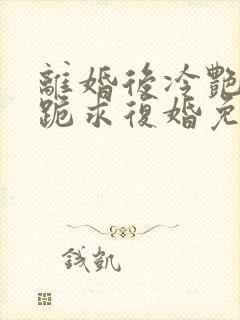 離婚後冷艷
跪求復婚免
錢凱